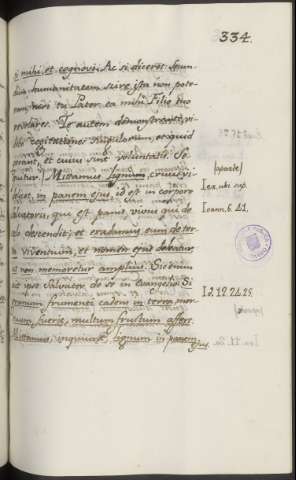 334.
mihi, et cognovi. Ac si diceret: Secun-
dum humanitatem scire ista non pote-
ram, nisi tu Pater ea mihi Filio tuo
revelares. Te autem demonstrante, vi-
di cogitationes singulorum, et quid
gerant, et cuius sint voluntatis. Se-
quitur. Mittamus lignum, crucis vi-
delicet, in panem ejus, id est in corpore
Salvatoris, qui est panis vivus qui de
descendit; et eradamus eum de ter-
ra viventium, et nomen ejus deleatur,
et non memoretur amplius. Sic enim
et ipse Salvator de se in Evangelio: Si
granum frumenti cadens in terra mor-
tuum fuerit, multum fructum affert.
Mittamus, inquiunt, lignum in panem
ejus
(aparte)
Iea. ubi sup.
Ioann. 6. 41.
12. 24. 25.
(aparte)